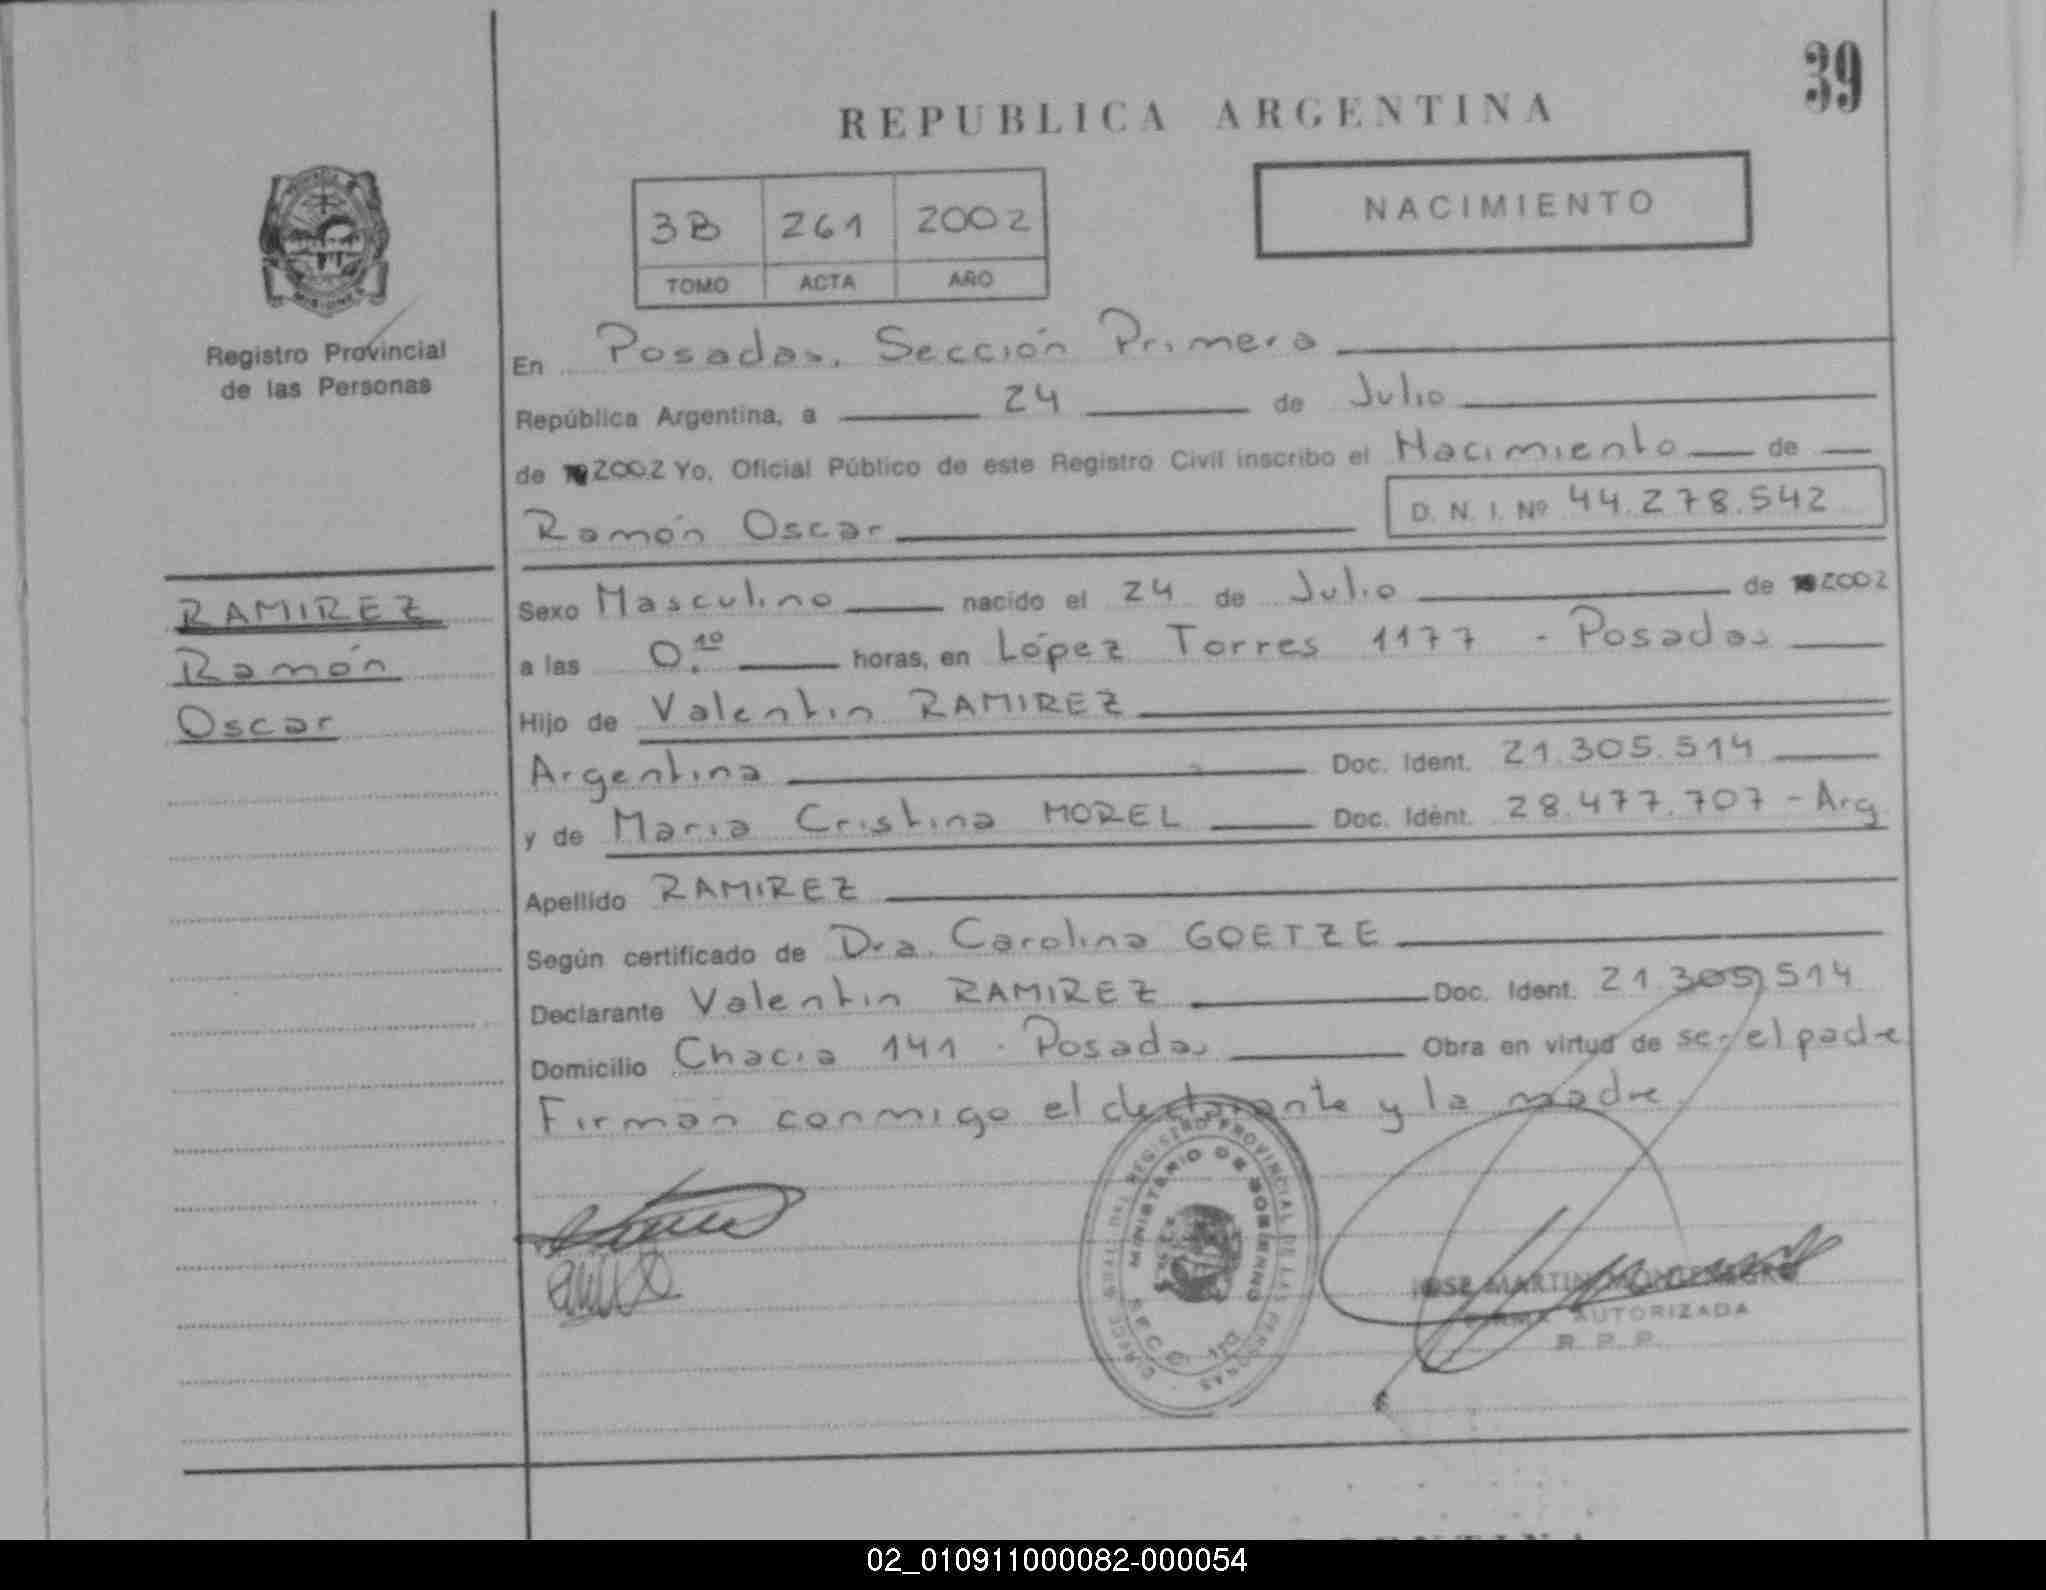 39
REPUBLICA ARGENTINA
NACIMIENTO
3B 261 2002
TOMO ACTA AÑO
Registro Provincial
de las Personas
En Posadas, Sección Primera
República Argentina, a 24 de Julio
de 2002 Yo, Oficial Público de este Registro Civil inscribo el Nacimiento de
Ramón Oscar D. N. I. Nº 44.278.542
RAMIREZ
Ramón
Oscar
Sexo Masculino nacido el 24 de Julio de 2002
a las 0.10 horas, en López Torres 1177 - Posadas
Hijo de Valentin RAMIREZ
Argentina Doc. Ident. 21.305.514
y de Maria Cristina MOREL Doc. Ident. 28.477.707 - Arg.
Apellido RAMIREZ
Según certificado de Dra. Carolina GOETZE
Declarante Valentin RAMIREZ Doc. Ident. 21.305.514
Domicilio Chacra 141 - Posadas Obra en virtud de ser el padre
Firman conmigo el declarante y la madre
REGISTRO PROVINCIAL DE LAS PERSONAS
MINISTERIO DE GOBIERNO
JOSE MARTIN
FIRMA AUTORIZADA
R. P. P.
02_010911000082-000054